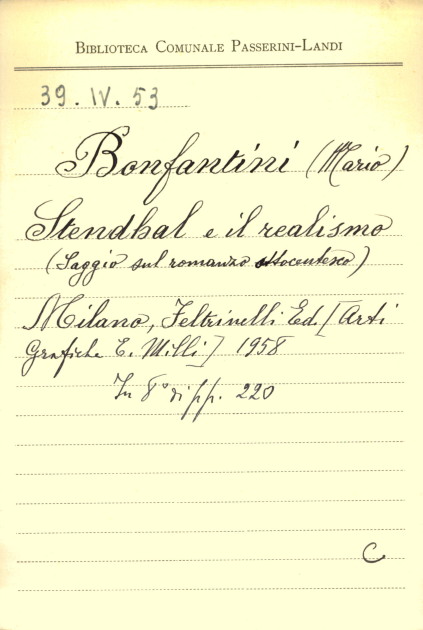 BIBLIOTECA COMUNALE PASSERINI-LANDI
39. IV. 53
Bonfantini (Mario)
Stendhal e il realismo
(Saggio sul romanzo ottocentesco)
Milano, Feltrinelli Ed. [Arti
Grafiche E. Milli] 1958
In 8° di pp. 220
C